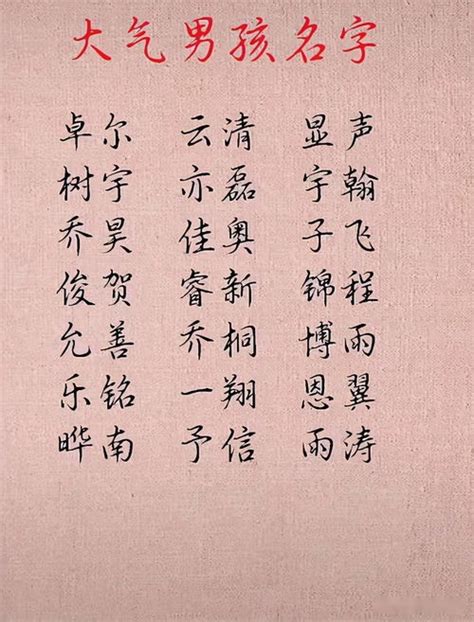 大气男孩名字
卓尔 云清 显声
树宇 亦磊 宇翰
乔昊 佳奥 子飞
俊贺 睿新 锦程
允善 乔桐 博雨
乐铭 一翔 恩翼
晔南 予信 雨涛